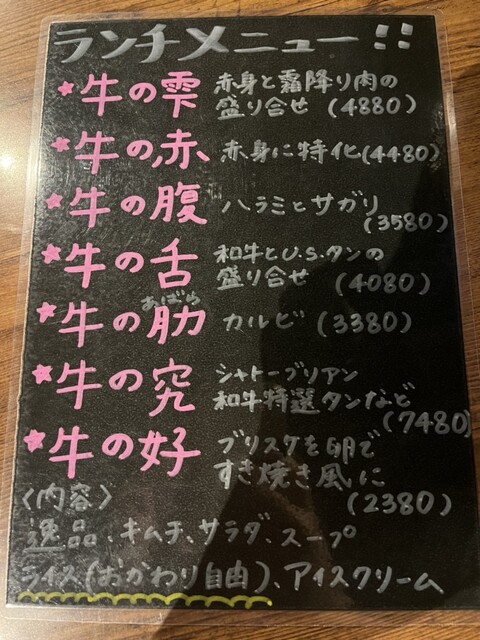 ランチメニュー!!
★牛の雫 赤身と霜降り肉の
盛り合せ (4880)
★牛の赤 赤身に特化(4480)
★牛の腹 ハラミとサガリ
(3580)
★牛の舌 和牛とU.S.タンの
盛り合せ (4080)
あばら
★牛の肋 カルビ (3380)
★牛の究 シャトーブリアン
和牛特選タンなど
(7480)
★牛の好 ブリスケを卵で
すき焼き風に
(2380)
〈内容〉
逸品、キムチ、サラダ、スープ
ライス(おかわり自由)、アイスクリーム